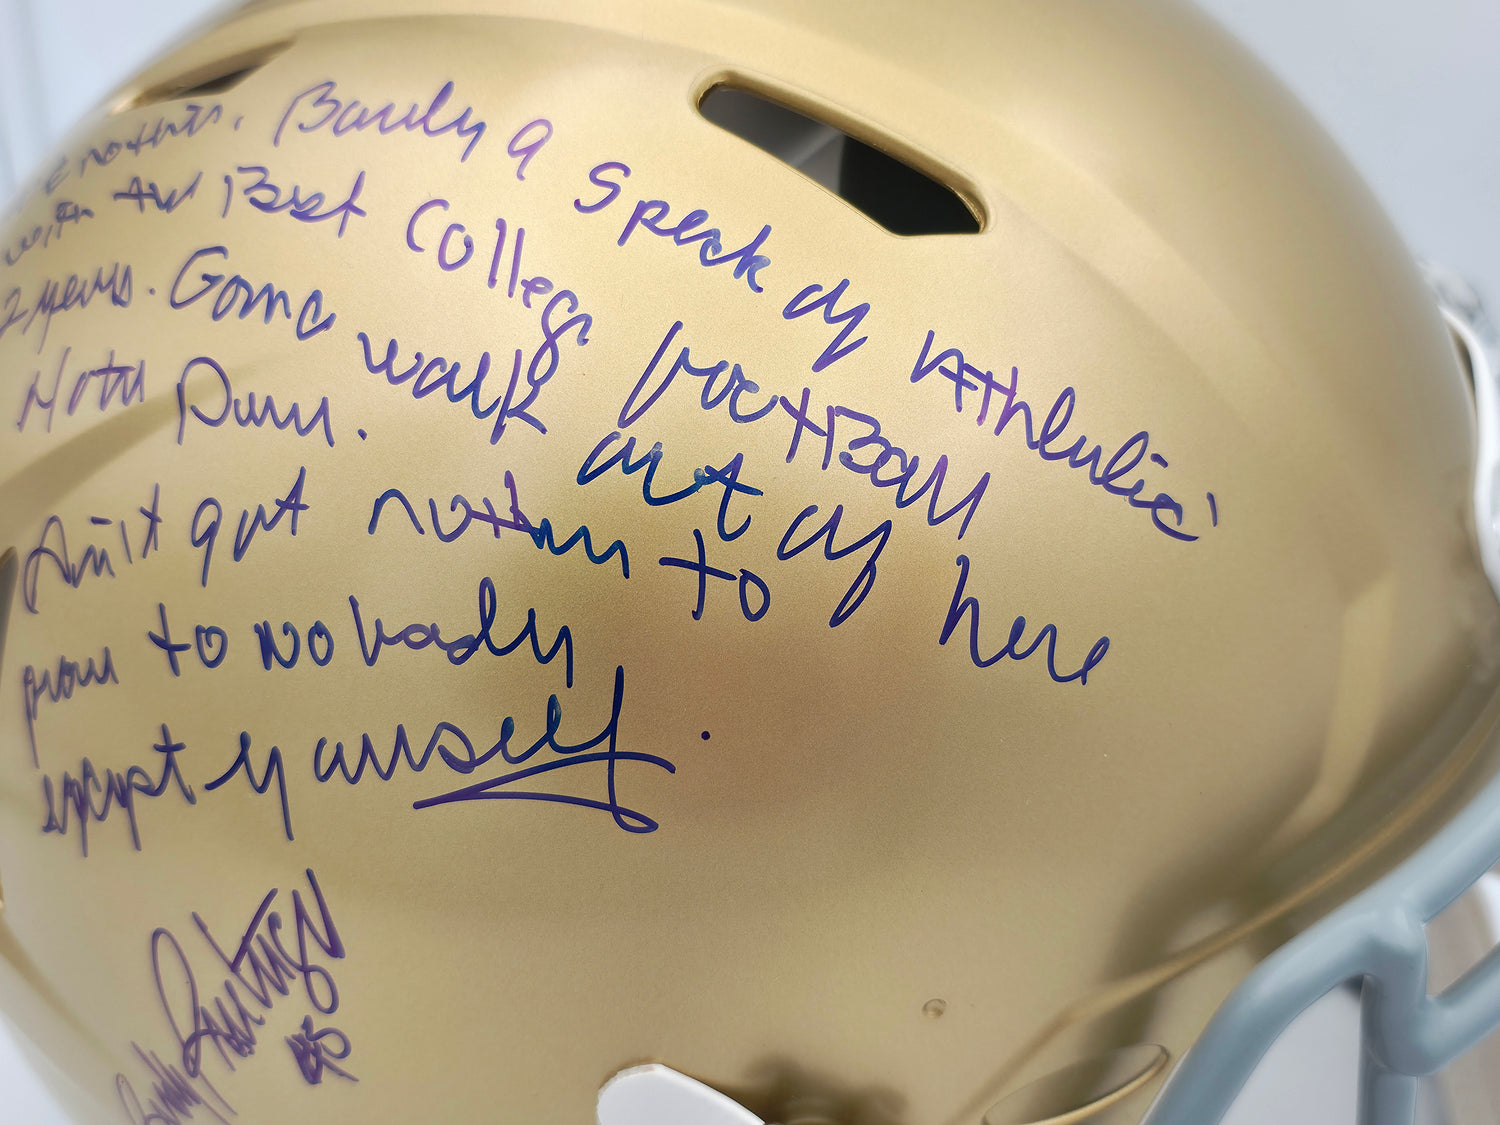 Barely a Speck of Athletic'
with the Best College football
2 years. Gonna walk out of here
Notre Dame.
Ain't got nothin to
prove to Nobody
except yourself.
Rudy Ruettiger